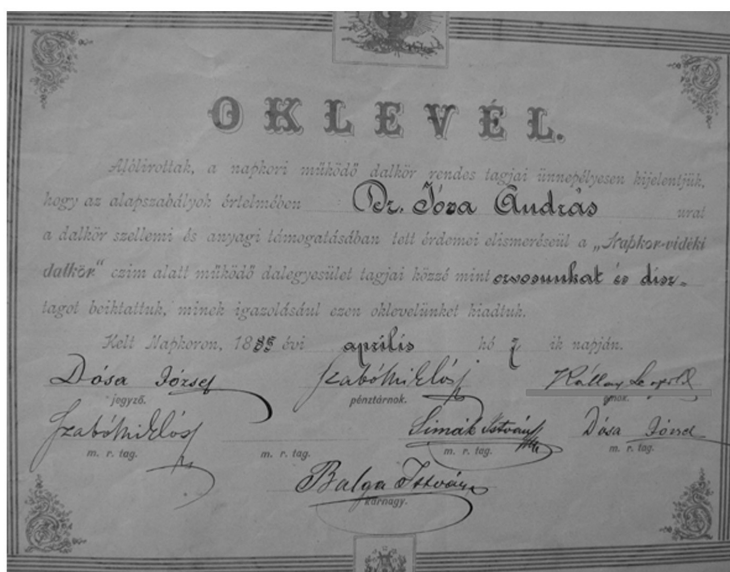 OKLEVÉL.
Alólirottak, a napkori működő dalkör rendes tagjai ünnepélyesen kijelentjük,
hogy az alapszabályok értelmében Dr. Jósa András urat
a dalkör szellemi és anyagi támogatásában tett érdemei elismeréseül a „Napkor-vidéki
dalkör" czim alatt működő dalegyesület tagjai közzé mint orvosunkat és disz-
tagot beiktattuk, minek igazolásául ezen oklevelünket kiadtuk.
Kelt Napkoron, 188 évi április hó ik napján.
Dósa József Szabó Miklós Kállay Leopold
jegyző. pénztárnok. elnök.
Szabó Miklós Simák István Dósa József
m. r. tag. m. r. tag. m. r. tag. m. r. tag.
Balga István
karnagy.